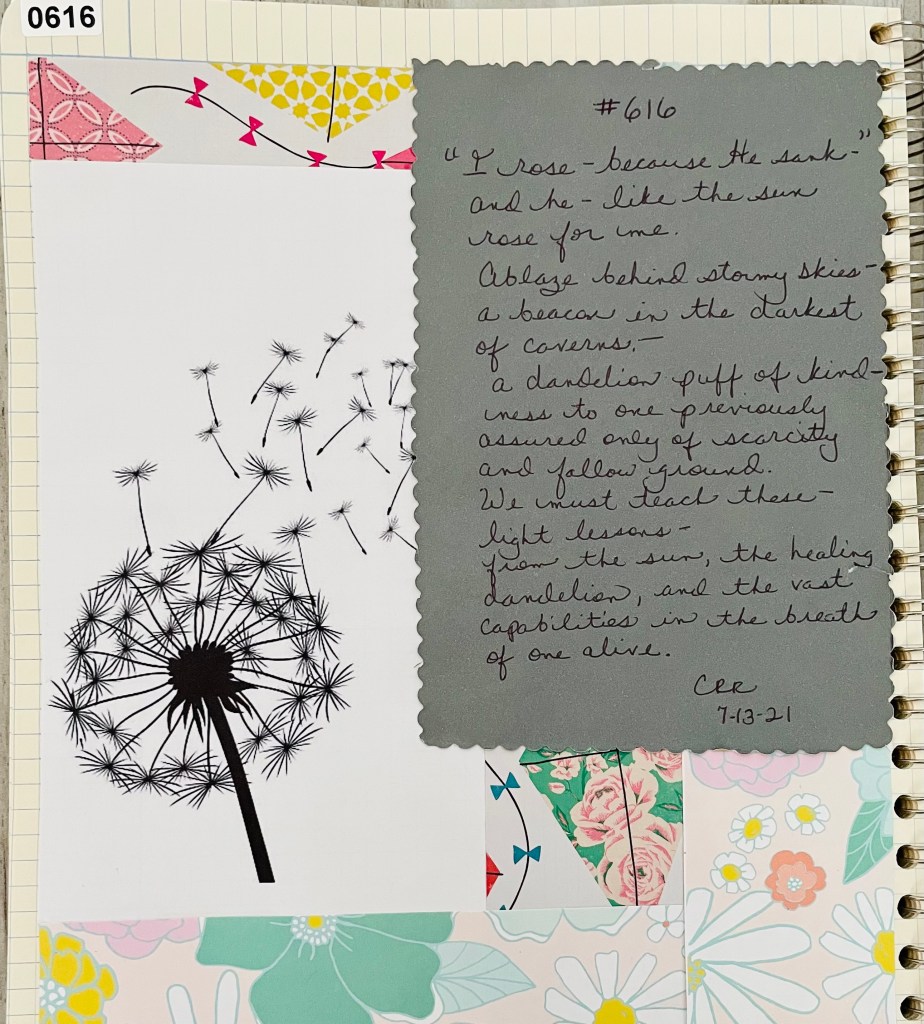 0616
#616
"I rose - because He sank -"
and he - like the sun
rose for me.
Ablaze behind stormy skies -
a beacon in the darkest
of caverns. -
a dandelion puff of kind-
ness to one previously
assured only of scarcity
and fallow ground.
We must teach these -
light lessons -
from the sun, the healing
dandelion, and the vast
capabilities in the breath
of one alive.
CRR
7-13-21